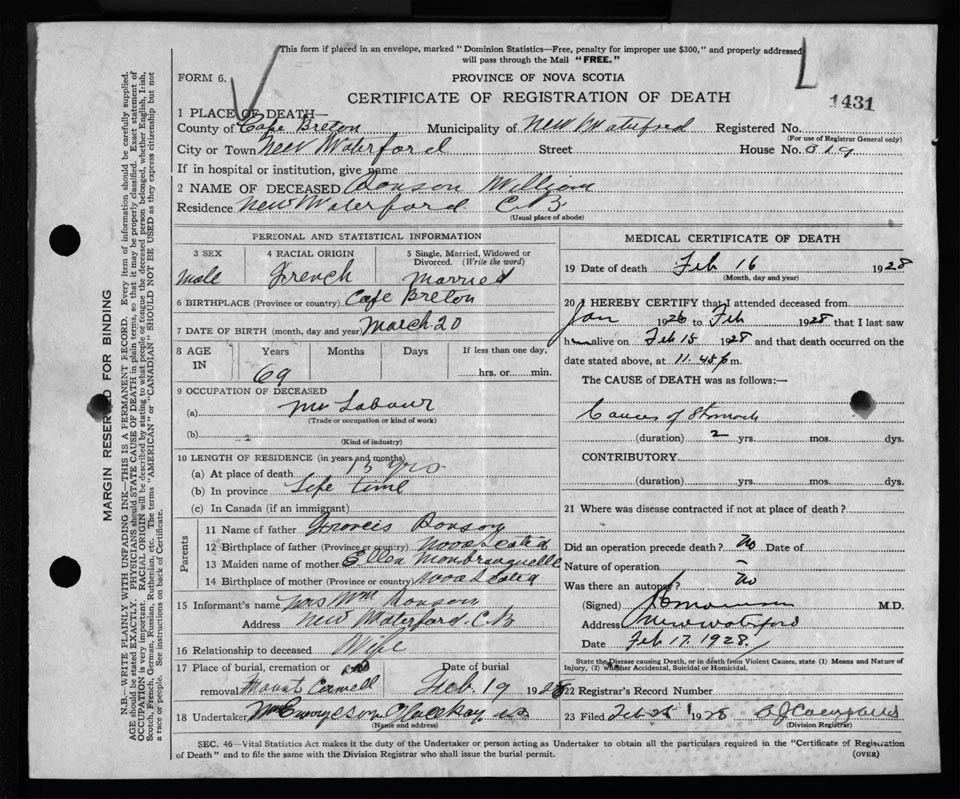 This form if placed in an envelope, marked "Dominion Statistics—Free, penalty for improper use $300," and properly addressed
will pass through the Mail "FREE."
FORM 6.
PROVINCE OF NOVA SCOTIA
CERTIFICATE OF REGISTRATION OF DEATH
1431
1 PLACE OF DEATH—
County of Cape Breton Municipality of New Waterford Registered No.
(For use of Registrar General only)
City or Town New Waterford Street House No. 819
If in hospital or institution, give name
2 NAME OF DECEASED William
Residence New Waterford C.B.
(Usual place of abode)
PERSONAL AND STATISTICAL INFORMATION
3 SEX 4 RACIAL ORIGIN 5 Single, Married, Widowed or
Divorced. (Write the word)
male French Married
6 BIRTHPLACE (Province or country) Cape Breton
7 DATE OF BIRTH (month, day and year) March 20
8 AGE IN Years Months Days If less than one day,
69 hrs. or min.
9 OCCUPATION OF DECEASED
(a) Labour
(Trade or occupation or kind of work)
(b)
(Kind of industry)
10 LENGTH OF RESIDENCE (in years and months)
(a) At place of death 15 yrs
(b) In province Life time
(c) In Canada (if an immigrant)
Parents
11 Name of father Francis
12 Birthplace of father (Province or country) Nova Scotia
13 Maiden name of mother Ellen
14 Birthplace of mother (Province or country) Nova Scotia
15 Informant's name Mrs Wm
Address New Waterford. C.B.
16 Relationship to deceased Wife
17 Place of burial, cremation or Date of burial
removal Mount Carmell Feb. 19 1928
18 Undertaker Glace Bay
(Name and address)
MEDICAL CERTIFICATE OF DEATH
19 Date of death Feb 16 1928
(Month, day and year)
20 I HEREBY CERTIFY that I attended deceased from
Jan 1926 to Feb 1928 that I last saw
him alive on Feb 15 1928 and that death occurred on the
date stated above, at 11.45 p m.
The CAUSE OF DEATH was as follows:—
Cancer of Stomach
(duration) 2 yrs. mos. dys.
CONTRIBUTORY
(duration) yrs. mos. dys.
21 Where was disease contracted if not at place of death?
Did an operation precede death? No Date of
Nature of operation –
Was there an autopsy? No
(Signed) M.D.
Address New Waterford
Date Feb 17. 1928.
State the Disease causing Death, or in death from Violent Causes, state (1) Means and Nature of
Injury, (2) whether Accidental, Suicidal or Homicidal.
22 Registrar's Record Number
23 Filed Feb 1928
(Division Registrar)
SEC. 46—Vital Statistics Act makes it the duty of the Undertaker or person acting as Undertaker to obtain all the particulars required in the "Certificate of Registration
of Death" and to file the same with the Division Registrar who shall issue the burial permit. (OVER)
MARGIN RESERVED FOR BINDING
N.B.—WRITE PLAINLY WITH UNFADING INK—THIS IS A PERMANENT RECORD. Every item of information should be carefully supplied.
AGE should be stated EXACTLY. PHYSICIANS should STATE CAUSE OF DEATH in plain terms, so that it may be properly classified. Exact statement of
OCCUPATION is very important. RACIAL ORIGIN will be described by stating to what people or tongue the deceased person belonged, whether English, Irish,
Scotch, French, German, Russian, Ruthenian, etc. The terms "AMERICAN" or "CANADIAN" SHOULD NOT BE USED as they express citizenship but not
a race or people. See instructions on back of Certificate.